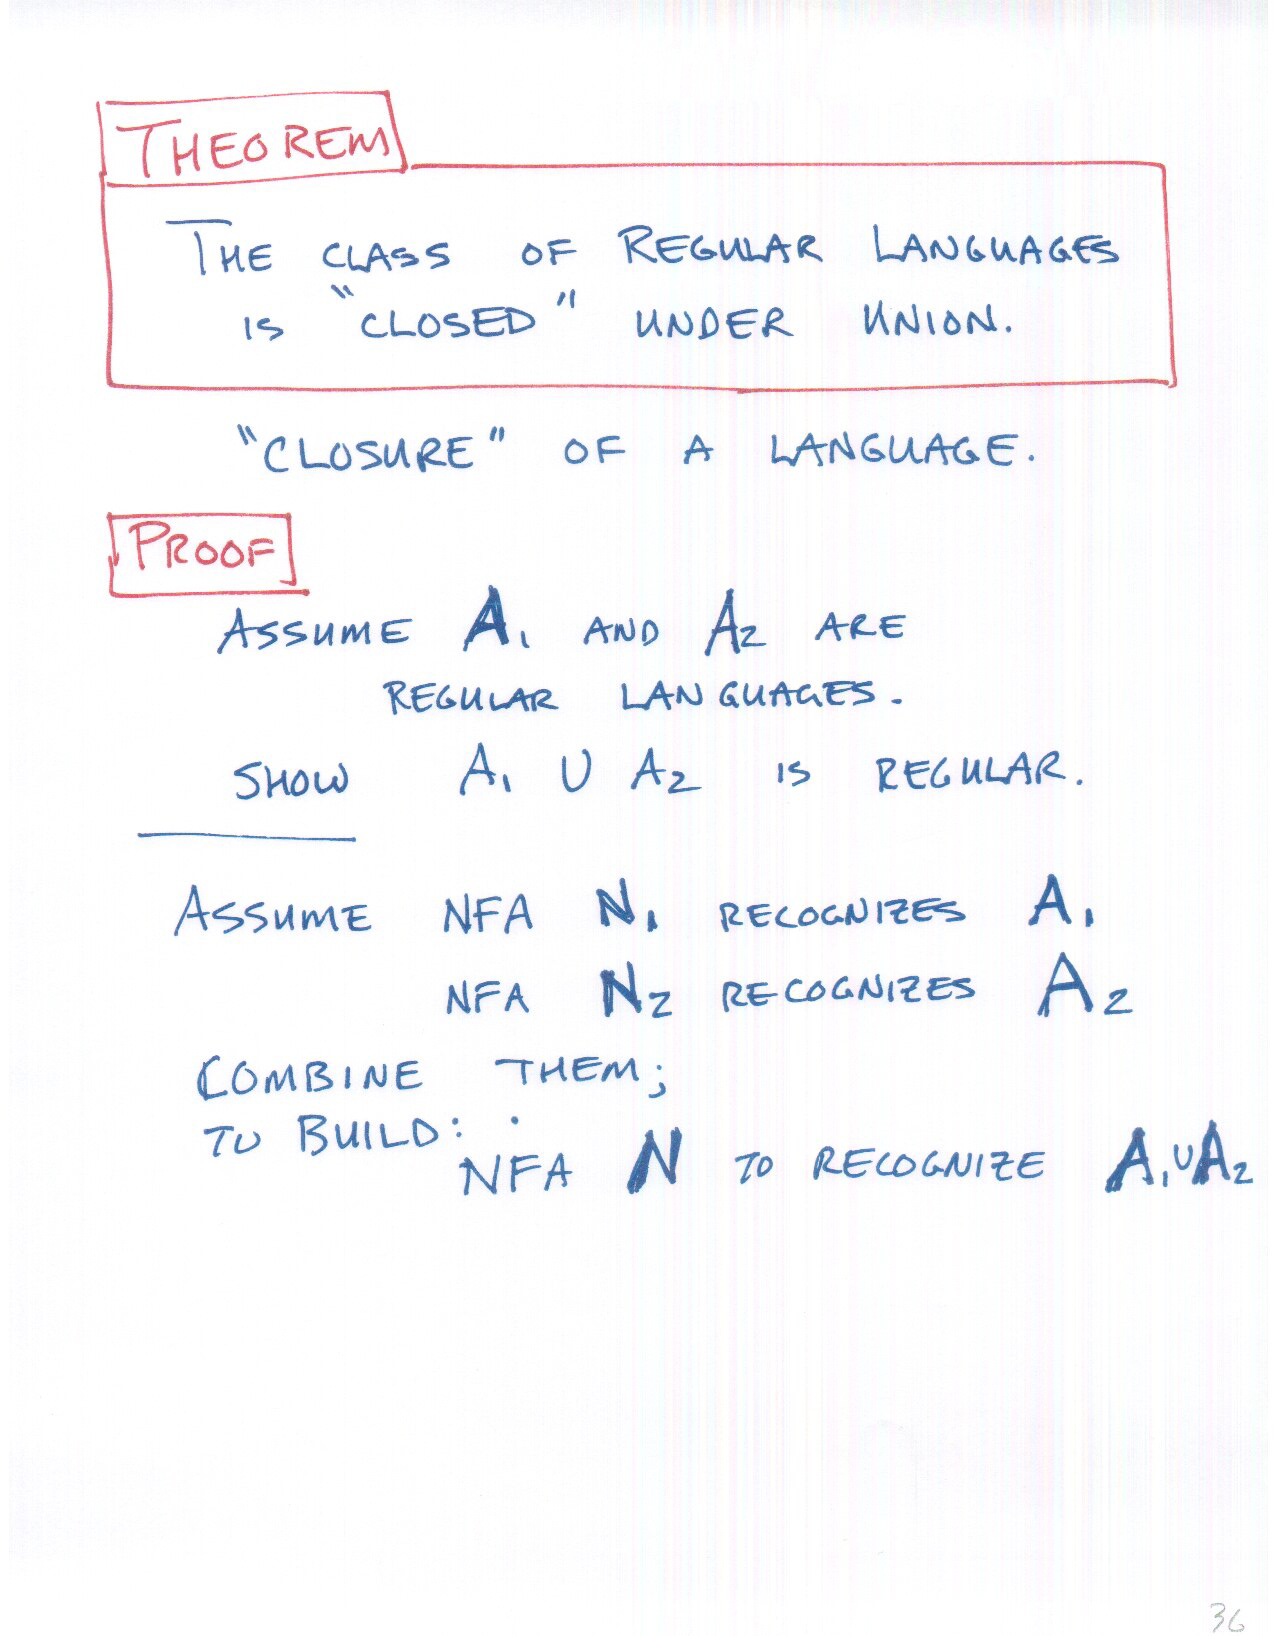 THEOREM
THE CLASS OF REGULAR LANGUAGES
IS "CLOSED" UNDER UNION.
"CLOSURE" OF A LANGUAGE.
PROOF
ASSUME A₁ AND A₂ ARE
REGULAR LANGUAGES.
SHOW A₁ ∪ A₂ IS REGULAR.
ASSUME NFA N₁ RECOGNIZES A₁
NFA N₂ RECOGNIZES A₂
COMBINE THEM;
TO BUILD:
NFA N TO RECOGNIZE A₁∪A₂
36